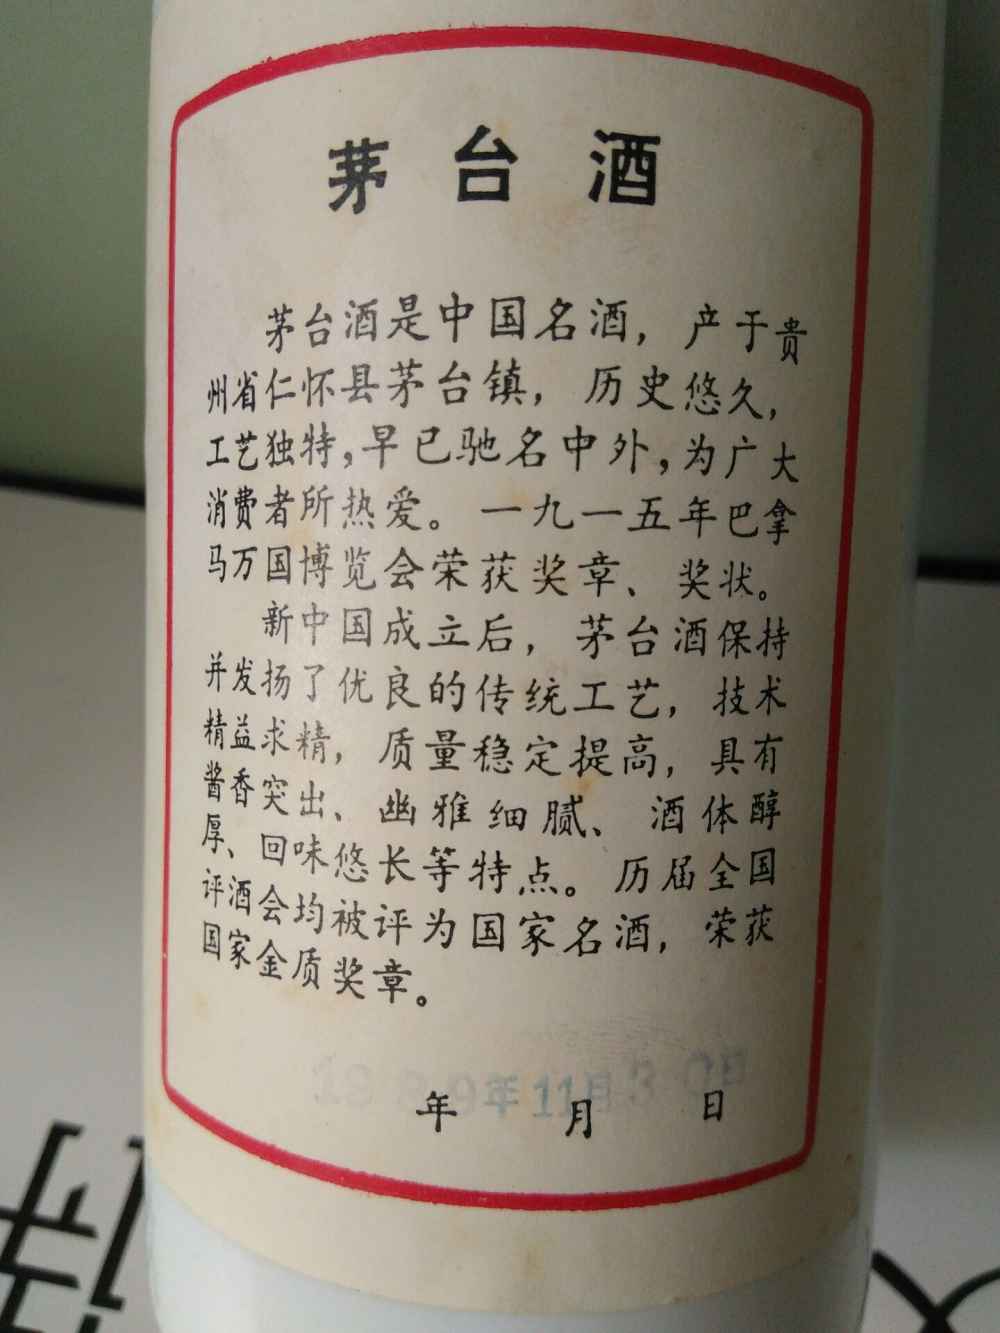 茅台酒
茅台酒是中国名酒，产于贵
州省仁怀县茅台镇，历史悠久，
工艺独特，早已驰名中外，为广大
消费者所热爱。一九一五年巴拿
马万国博览会荣获奖章、奖状。
新中国成立后，茅台酒保持
并发扬了优良的传统工艺，技术
精益求精，质量稳定提高，具有
酱香突出、幽雅细腻、酒体醇
厚、回味悠长等特点。历届全国
评酒会均被评为国家名酒，荣获
国家金质奖章。
1989年11月30日
年 月 日